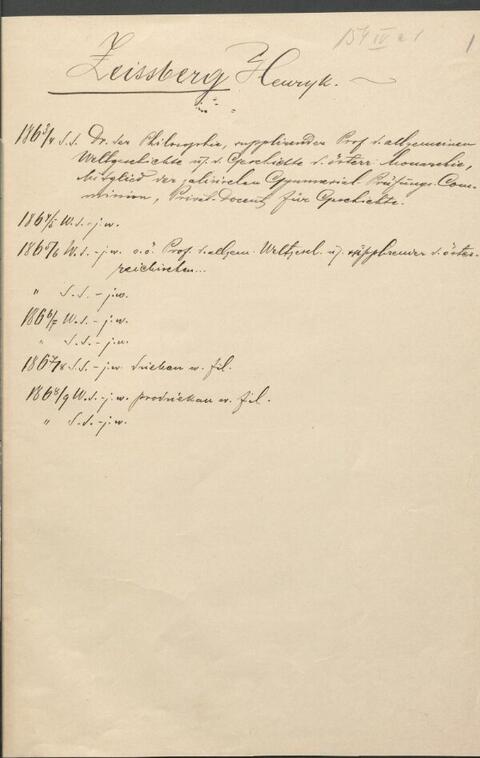 1
Zeissberg Henryk.
1863/4 S.S. Dr. der Philosophie, supplirender Prof. d. allgemeinen
Weltgeschichte u. d. Geschichte d. österr. Monarchie,
Mitglied der galizischen Gymnasial Prüfungs-Com-
mission, Privat-Docent für Geschichte.
1864/5 W.S. - j.w.
1865/6 W.S. - j.w. o.ö. Prof. d. allgem. Weltgesch. u. supplirender d. öster-
reichischen...
" S.S. - j.w.
1866/7 W.S. - j.w.
" S.S. - j.w.
1867/8 S.S. - j.w. dziekan w. fil.
1868/9 W.S. - j.w. prodziekan w. fil.
" S.S. - j.w.